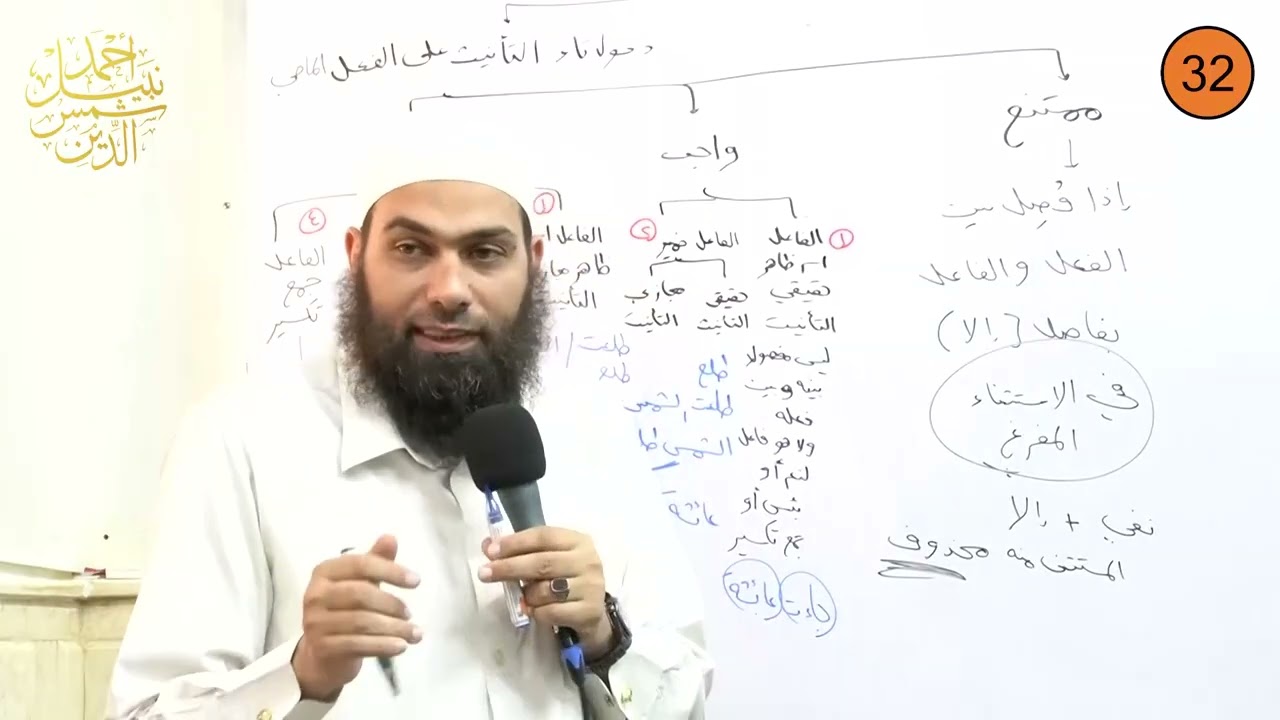 أحمد
نبيل
شمس
الدين
32
دخول تاء التأنيث على الفعل الماضي
ممتنع
إذا فُصِل بين
الفعل والفاعل
بفاصل (إلا)
في الاستثناء
المفرغ
نفي + إلا
المستثنى منه محذوف
واجب
١ الفاعل
اسم ظاهر
حقيقي
التأنيث
ليس مفصولا
بينه وبين
فعله
ولا هو فاعل
لنعم أو
بئس أو
جمع تكسير
جاءت عائشة
٢ الفاعل ضمير
حقيقي
التأنيث
مجازي
التأنيث
طلع
طلعت الشمس
الشمس طلـ
عائشة
١
الفاعل
ظاهر
التأنيث
طلعت /
طلع
٤
الفاعل
جمع
تكسير